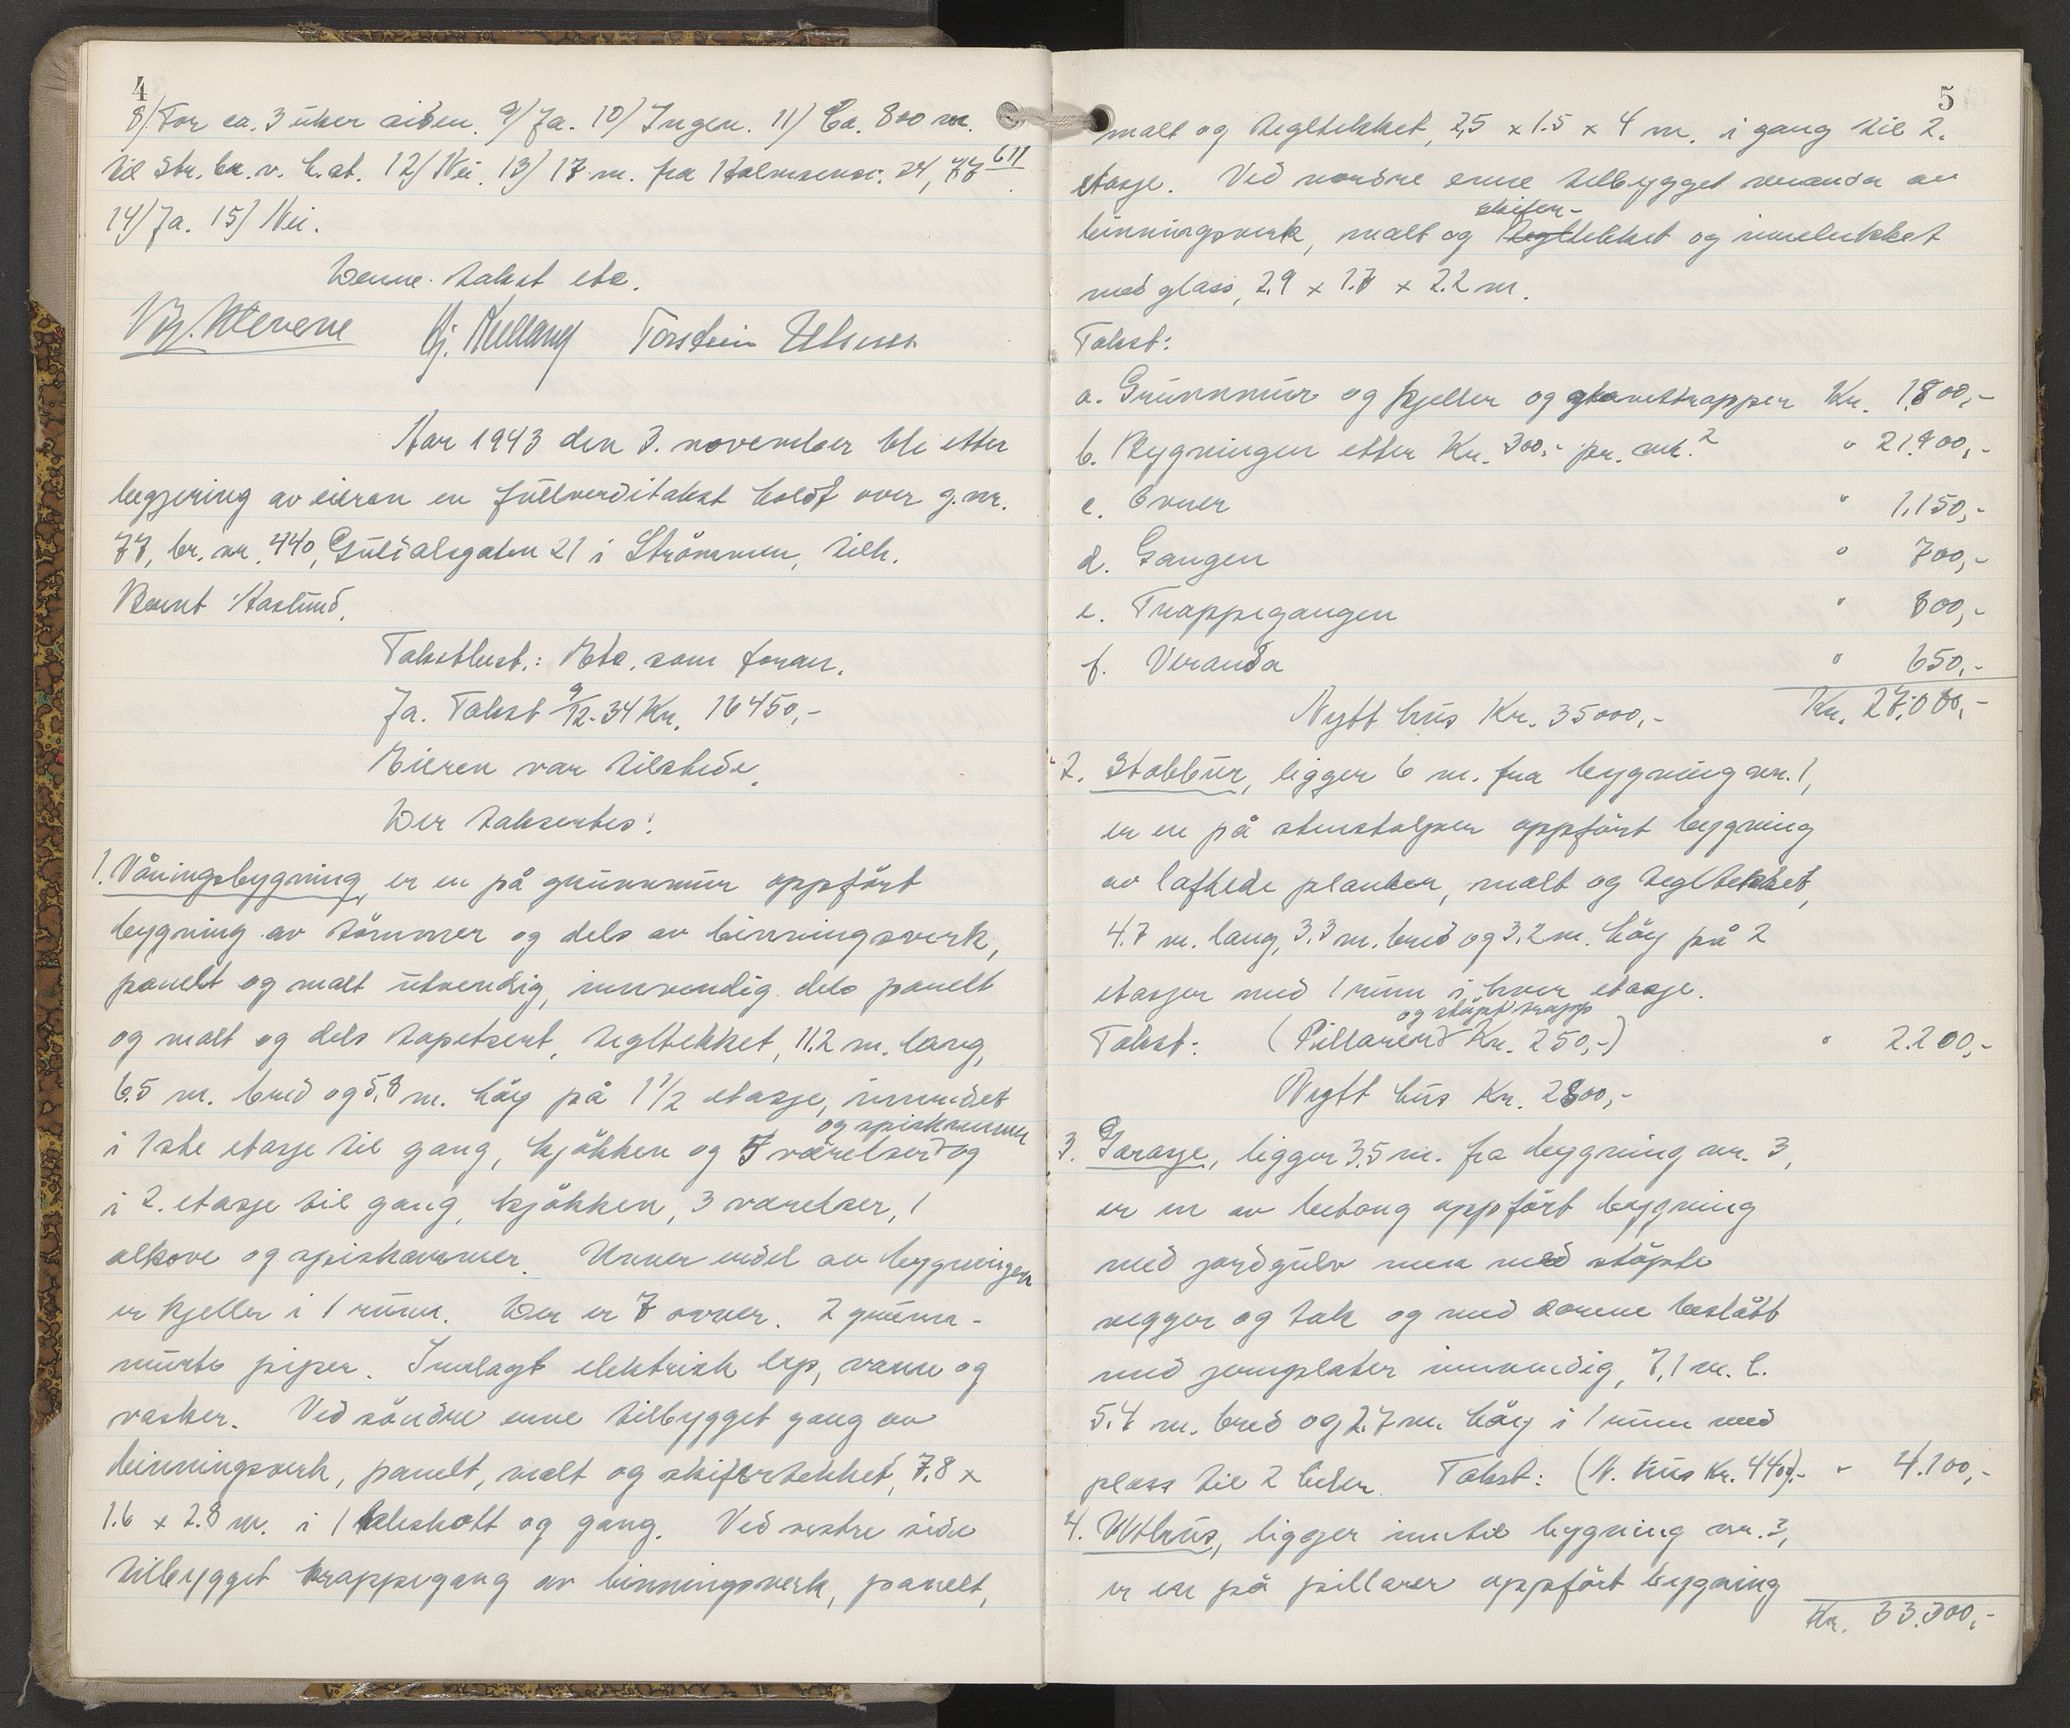 4
8/ For ca. 3 uker siden. 9/ Ja. 10/ Ingen. 11/ Ca. 800 m.
til Str. br. v. h.st. 12/ Nei. 13/ 17 m. fra Holmsensv. 24, 77/611.
14/ Ja. 15/ Nei.
Denne takst etc.
Torstein
Aar 1943 den 3. november ble etter
begjering av eieren en fullverditakst holdt over g.nr.
77, br. nr. 440, Guldalsgaten 21 i Strömmen, tilh.
Bernt Haslund.
Takstbest.: Etc. som foran.
Ja. Takst 9/12-34 Kr. 16450,-
Eieren var tilstede.
Der taksertes:
1. Våningsbygning, er en på grunnmur oppfört
bygning av tömmer og dels av binningsverk,
panelt og malt utvendig, innvendig dels panelt
og malt og dels tapetsert, tegltekket, 11.2 m. lang,
6.5 m. bred og 5.8 m. höy på 1 1/2 etasje, innredet
i 1ste etasje til gang, kjökken og 5 værelser og spiskammer og
i 2. etasje til gang, kjökken, 3 værelser, 1
alkove og spiskammer. Under endel av bygningen
er kjeller i 1 rum. Der er 7 ovner. 2 grunn-
murte piper. Innlagt elektrisk lys, vann og
vasker. Ved söndre enne tilbygget gang av
binningsverk, panelt, malt og skifertekket, 7.8 x
1.6 x 2.8 m. i 1 bislag og gang. Ved vestre side
tilbygget trappegang av binningsverk, panelt,
5
malt og tegltekket, 2,5 x 1.5 x 4 m. i gang til 2.
etasje. Ved nordre enne tilbygget veranda av
binningsverk, malt og skifer-tekket og innelukket
med glass, 2.9 x 1.7 x 2.2 m.
Takst:
a. Grunnmur og kjeller og gravettrapper Kr. 1.800,-
b. Bygningen etter Kr. 300,- pr. m² " 21.900,-
c. Ovner " 1.150,-
d. Gangen " 700,-
e. Trappegangen " 800,-
f. Veranda " 650,-
Nytt hus Kr. 35000,- Kr. 27.000,-
2. Stabbur, ligger 6 m. fra bygning nr. 1,
er en på stenstolper oppfört bygning
av laftede planker, malt og tegltekket,
4.7 m. lang, 3.3 m. bred og 3.2 m. höy på 2
etasjer med 1 rum i hver etasje.
Takst: (Pillarer og stöpt trapp Kr. 250,-) " 2.200,-
Nytt hus Kr. 2800,-
3. Garasje, ligger 3.5 m. fra bygning nr. 3,
er en av betong oppfört bygning
med jordgulv men med stöpte
vegger og tak og med dörene beslått
med jernplater innvendig, 7,1 m. l.
5.4 m. bred og 2.7 m. höy i 1 rum med
plass til 2 biler. Takst: (N. hus Kr. 4400,- " 4.100,-
4. Uthus, ligger inntil bygning nr. 3,
er en på pillarer oppfört bygning
Kr. 33.300,-